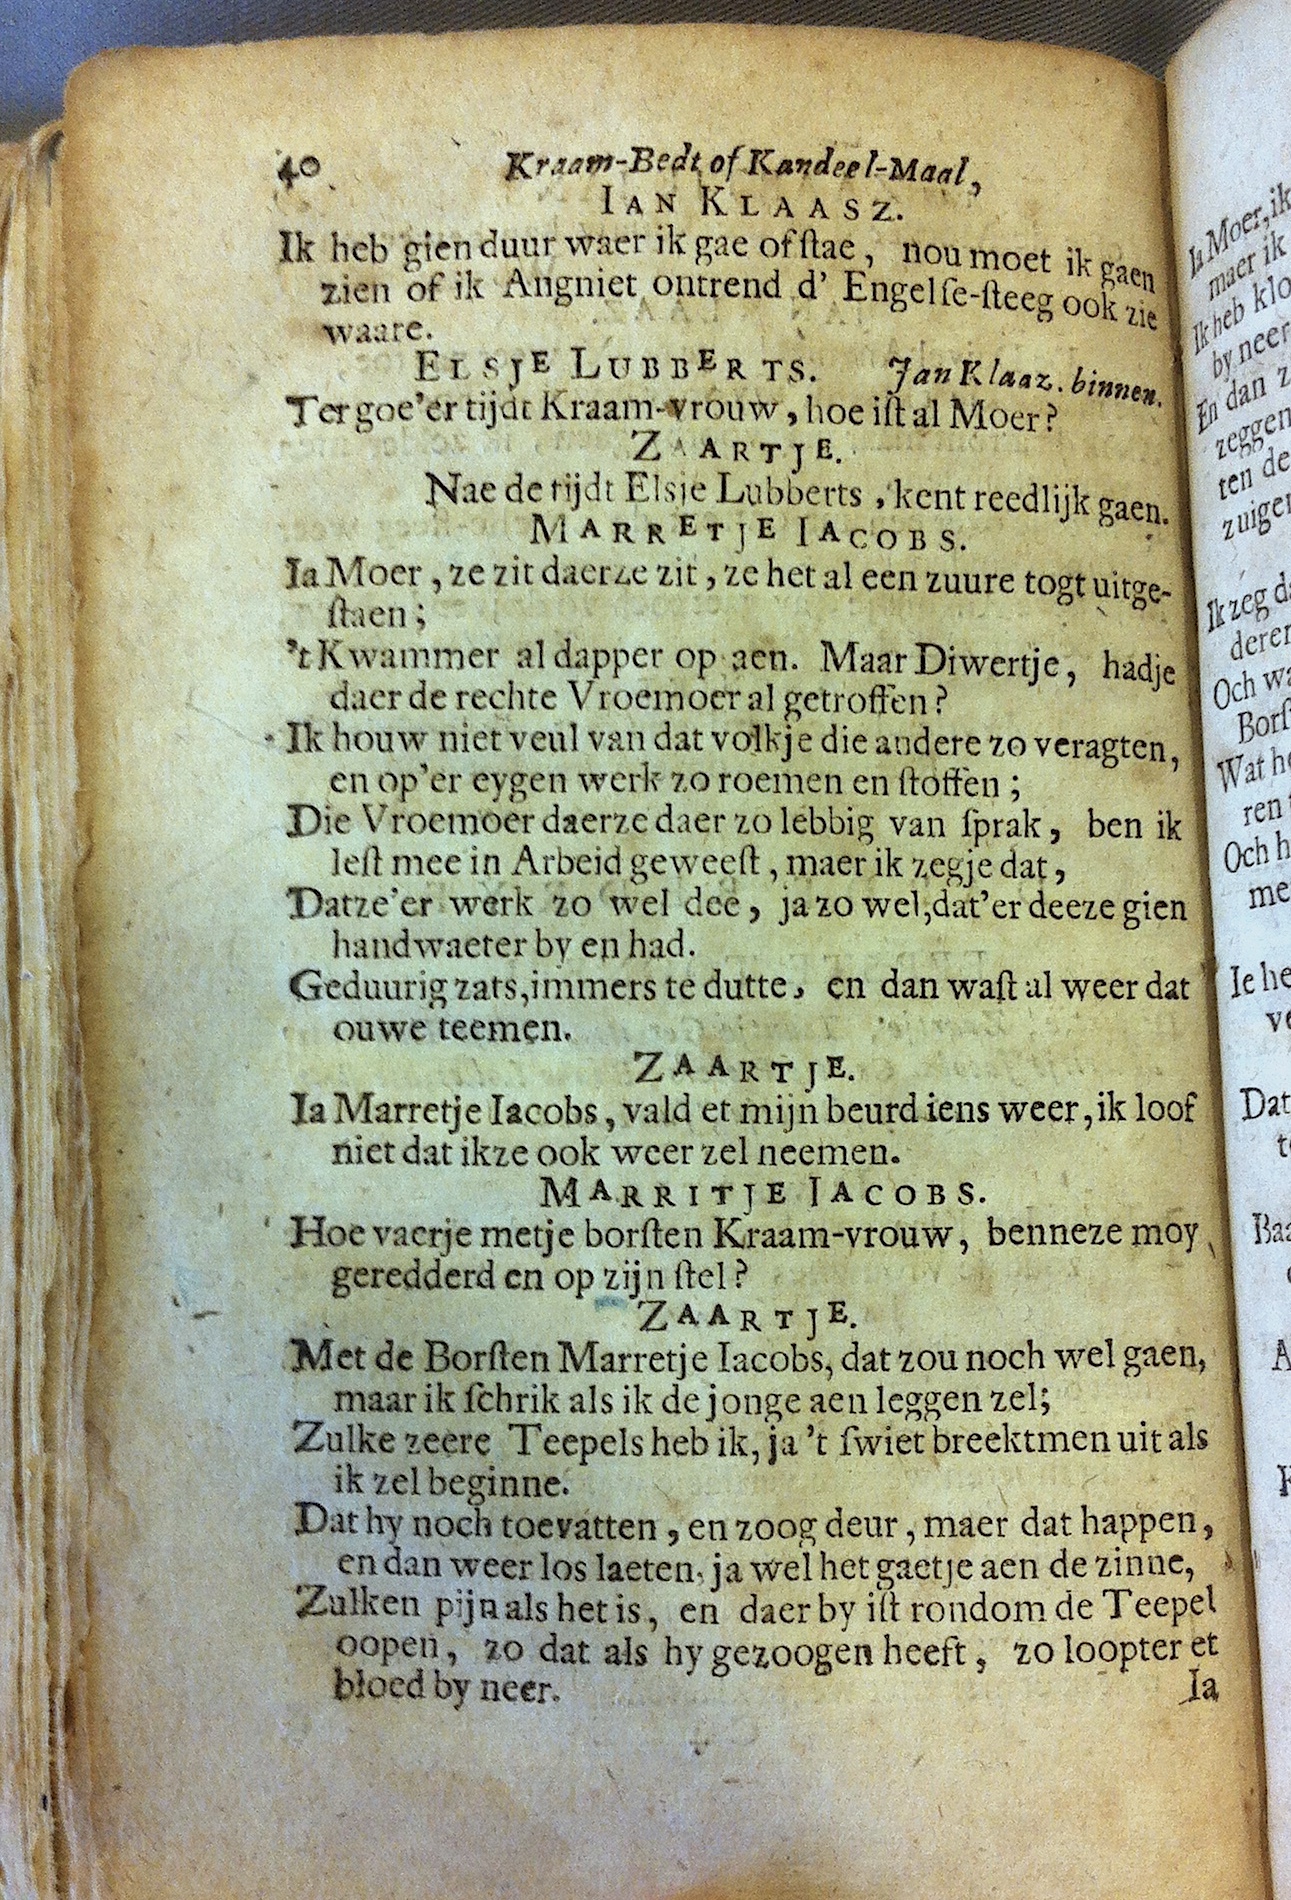 40 Kraam-Bedt of Kandeel-Maal,
IAN KLAASZ.
Ik heb gien duur waer ik gae of ſtae, nou moet ik gaen
zien of ik Angniet ontrend d' Engelſe-ſteeg ook zie
waare.
ELSJE LUBBERTS. Jan Klaaz. binnen.
Ter goe'er tijdt Kraam-vrouw, hoe iſt al Moer?
ZAARTJE.
Nae de tijdt Elsje Lubberts, kent reedlijk gaen.
MARRETJE IACOBS.
Ia Moer, ze zit daerze zit, ze het al een zuure togt uitge-
ſtaen;
't Kwammer al dapper op aen. Maar Diwertje, hadje
daer de rechte Vroemoer al getroffen?
Ik houw niet veul van dat volkje die andere zo veragten,
en op'er eygen werk zo roemen en ſtoffen;
Die Vroemoer daerze daer zo lebbig van ſprak, ben ik
leſt mee in Arbeid geweeſt, maer ik zegje dat,
Datze'er werk zo wel dee, ja zo wel, dat'er deeze gien
handwaeter by en had.
Geduurig zats, immers te dutte, en dan waſt al weer dat
ouwe teemen.
ZAARTJE.
Ia Marretje Iacobs, vald et mijn beurd iens weer, ik loof
niet dat ikze ook weer zel neemen.
MARRITJE IACOBS.
Hoe vaerje metje borſten Kraam-vrouw, benneze moy
geredderd en op zijn ſtel?
ZAARTJE.
Met de Borſten Marretje Iacobs, dat zou noch wel gaen,
maar ik ſchrik als ik de jonge aen leggen zel;
Zulke zeere Teepels heb ik, ja 't ſwiet breektmen uit als
ik zel beginne.
Dat hy noch toevatten, en zoog deur, maer dat happen,
en dan weer los laeten, ja wel het gaetje aen de zinne,
Zulken pijn als het is, en daer by iſt rondom de Teepel
oopen, zo dat als hy gezoogen heeft, zo loopter et
bloed by neer.
Ia
Ia Moer, ik
maer ik
Ik heb klo
by neer
En dan z
zeggen
ten de
zuige
Ik zeg d
derer
Och wa
Borſ
Wat he
ren
Och h
me
Ie he
ve
Dat
Baa